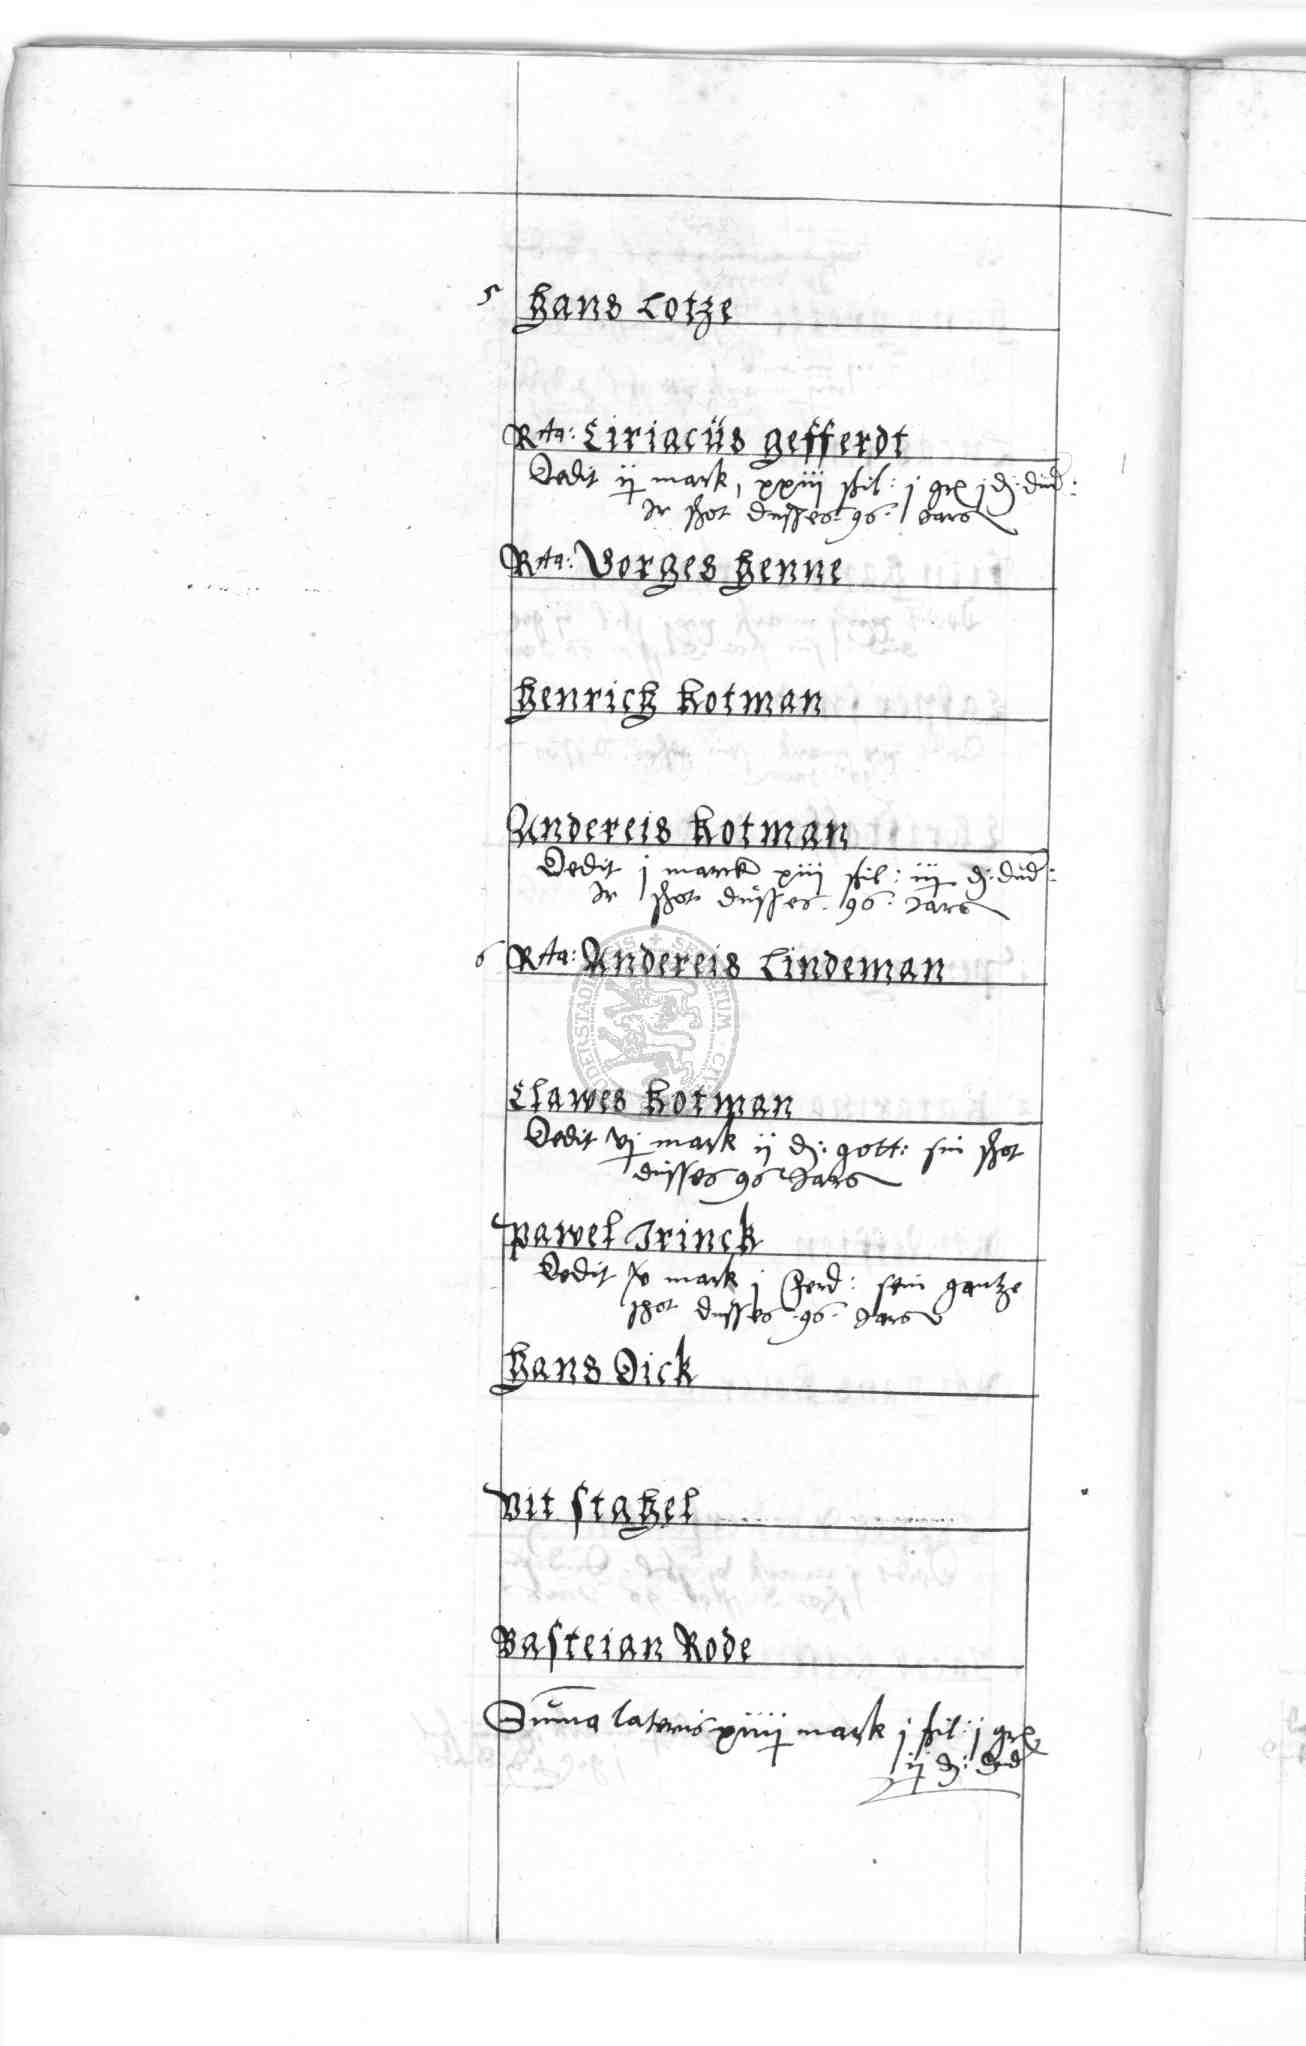 5 Hans Lotze
Rta: Ciriacus Gefferdt
Dedit ij mark, xxiij ßil: j gr j d: dud:
Ir schot dusses. 96. Jars
Rta: Borges Henne
Henrich Kotman
Andereis Kotman
Dedit j marck xiij ßil: iij d: dud:
Ir schot dusses. 96. Jars
6 Rta: Andereis Lindeman
Clawes Kotman
Dedit vj mark ij d: gott: sin schot
dusses 96 Jars
Pawel Irinck
Dedit mark j ferd: sein gantze
schot dusses .96. Jars
Hans Dick
Vit Stahel
Basteian Rode
Suma lateris xiiij mark j ßil: j gr
ij d: dud